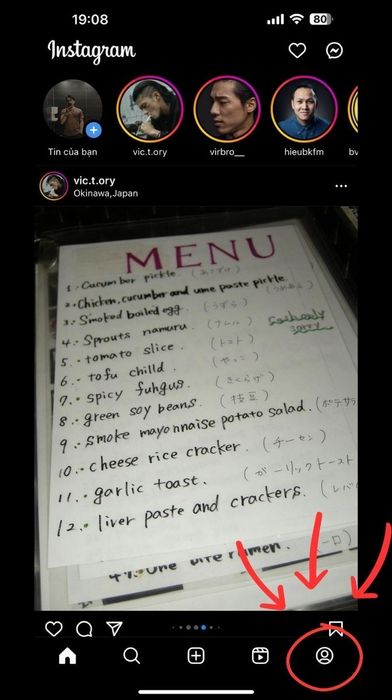 19:08
80
Instagram
Tin của bạn
vic.t.ory
virbro__
hieubkfm
vic.t.ory
Okinawa,Japan
MENU
1. Cucumber pickle.
2. Chicken, cucumber and ume paste pickle.
3. Smoked boiled egg. (うずら)
4. Sprouts namuru. (ナムル)
5. tomato slice. (トマト)
6. tofu chilld. (やっこ)
7. spicy fuhgus. (きくらげ)
8. green soy beans. (枝豆)
9. smoke mayonnaise potato salad. (ポテサラ
10. cheese rice cracker. (チーセン)
11. garlic toast. (ガーリックトースト
12. liver paste and crackers. (レバ
One bite ramen. (一口